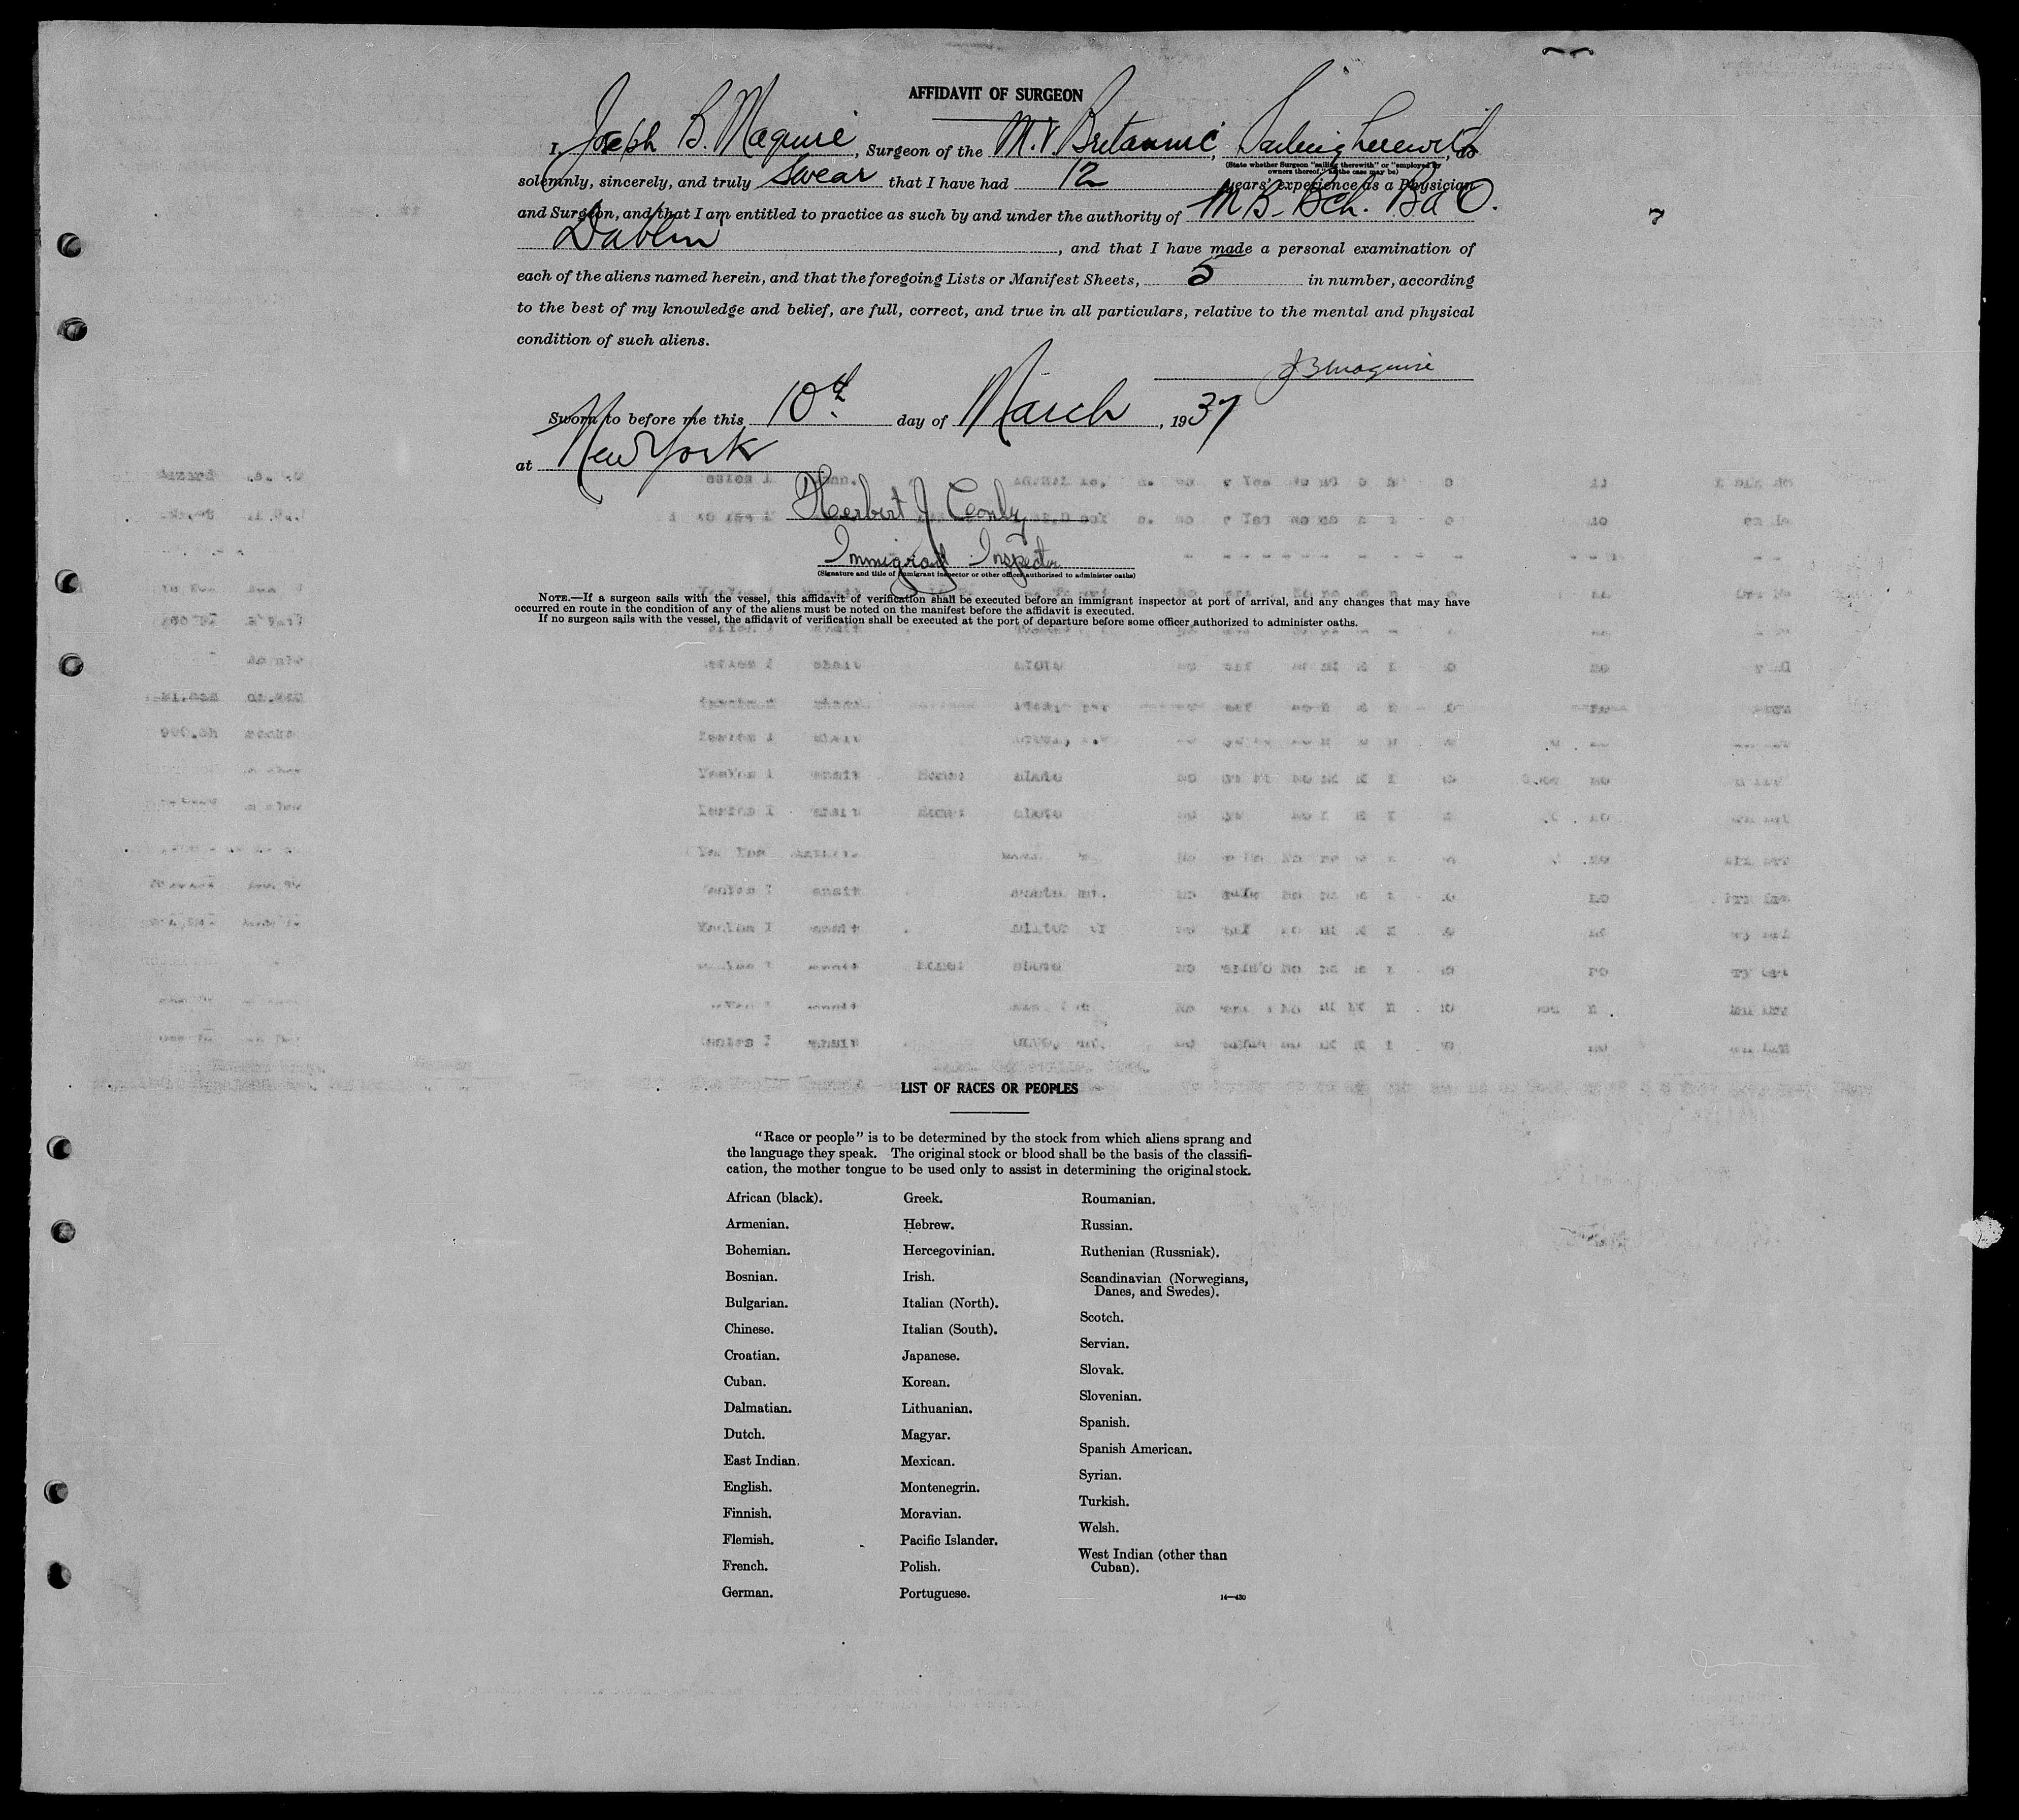 AFFIDAVIT OF SURGEON
I, Joseph B. Maguire, Surgeon of the M.V. Britannic, Sailing therewith, do
(State whether Surgeon "sailing therewith" or "employed by owners thereof," as the case may be)
solemnly, sincerely, and truly swear that I have had 12 years' experience as a Physician
and Surgeon, and that I am entitled to practice as such by and under the authority of M B. Bch. Ba O.
Dublin, and that I have made a personal examination of
each of the aliens named herein, and that the foregoing Lists or Manifest Sheets, 5 in number, according
to the best of my knowledge and belief, are full, correct, and true in all particulars, relative to the mental and physical
condition of such aliens.
JBMaguire
Sworn to before me this 10th day of March, 1937
at New York
Herbert J
Immigrant Inspector
(Signature and title of immigrant inspector or other officer authorised to administer oaths)
NOTE.—If a surgeon sails with the vessel, this affidavit of verification shall be executed before an immigrant inspector at port of arrival, and any changes that may have
occurred en route in the condition of any of the aliens must be noted on the manifest before the affidavit is executed.
If no surgeon sails with the vessel, the affidavit of verification shall be executed at the port of departure before some officer authorized to administer oaths.
LIST OF RACES OR PEOPLES
"Race or people" is to be determined by the stock from which aliens sprang and
the language they speak. The original stock or blood shall be the basis of the classifi-
cation, the mother tongue to be used only to assist in determining the original stock.
African (black).
Armenian.
Bohemian.
Bosnian.
Bulgarian.
Chinese.
Croatian.
Cuban.
Dalmatian.
Dutch.
East Indian.
English.
Finnish.
Flemish.
French.
German.
Greek.
Hebrew.
Hercegovinian.
Irish.
Italian (North).
Italian (South).
Japanese.
Korean.
Lithuanian.
Magyar.
Mexican.
Montenegrin.
Moravian.
Pacific Islander.
Polish.
Portuguese.
Roumanian.
Russian.
Ruthenian (Russniak).
Scandinavian (Norwegians,
Danes, and Swedes).
Scotch.
Servian.
Slovak.
Slovenian.
Spanish.
Spanish American.
Syrian.
Turkish.
Welsh.
West Indian (other than
Cuban).
14—430